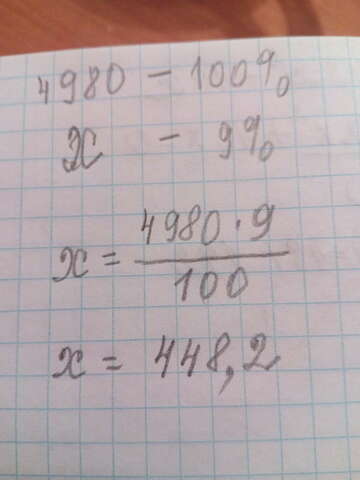 4980 - 100%
x - 9%
x = 4980 · 9 / 100
x = 448,2